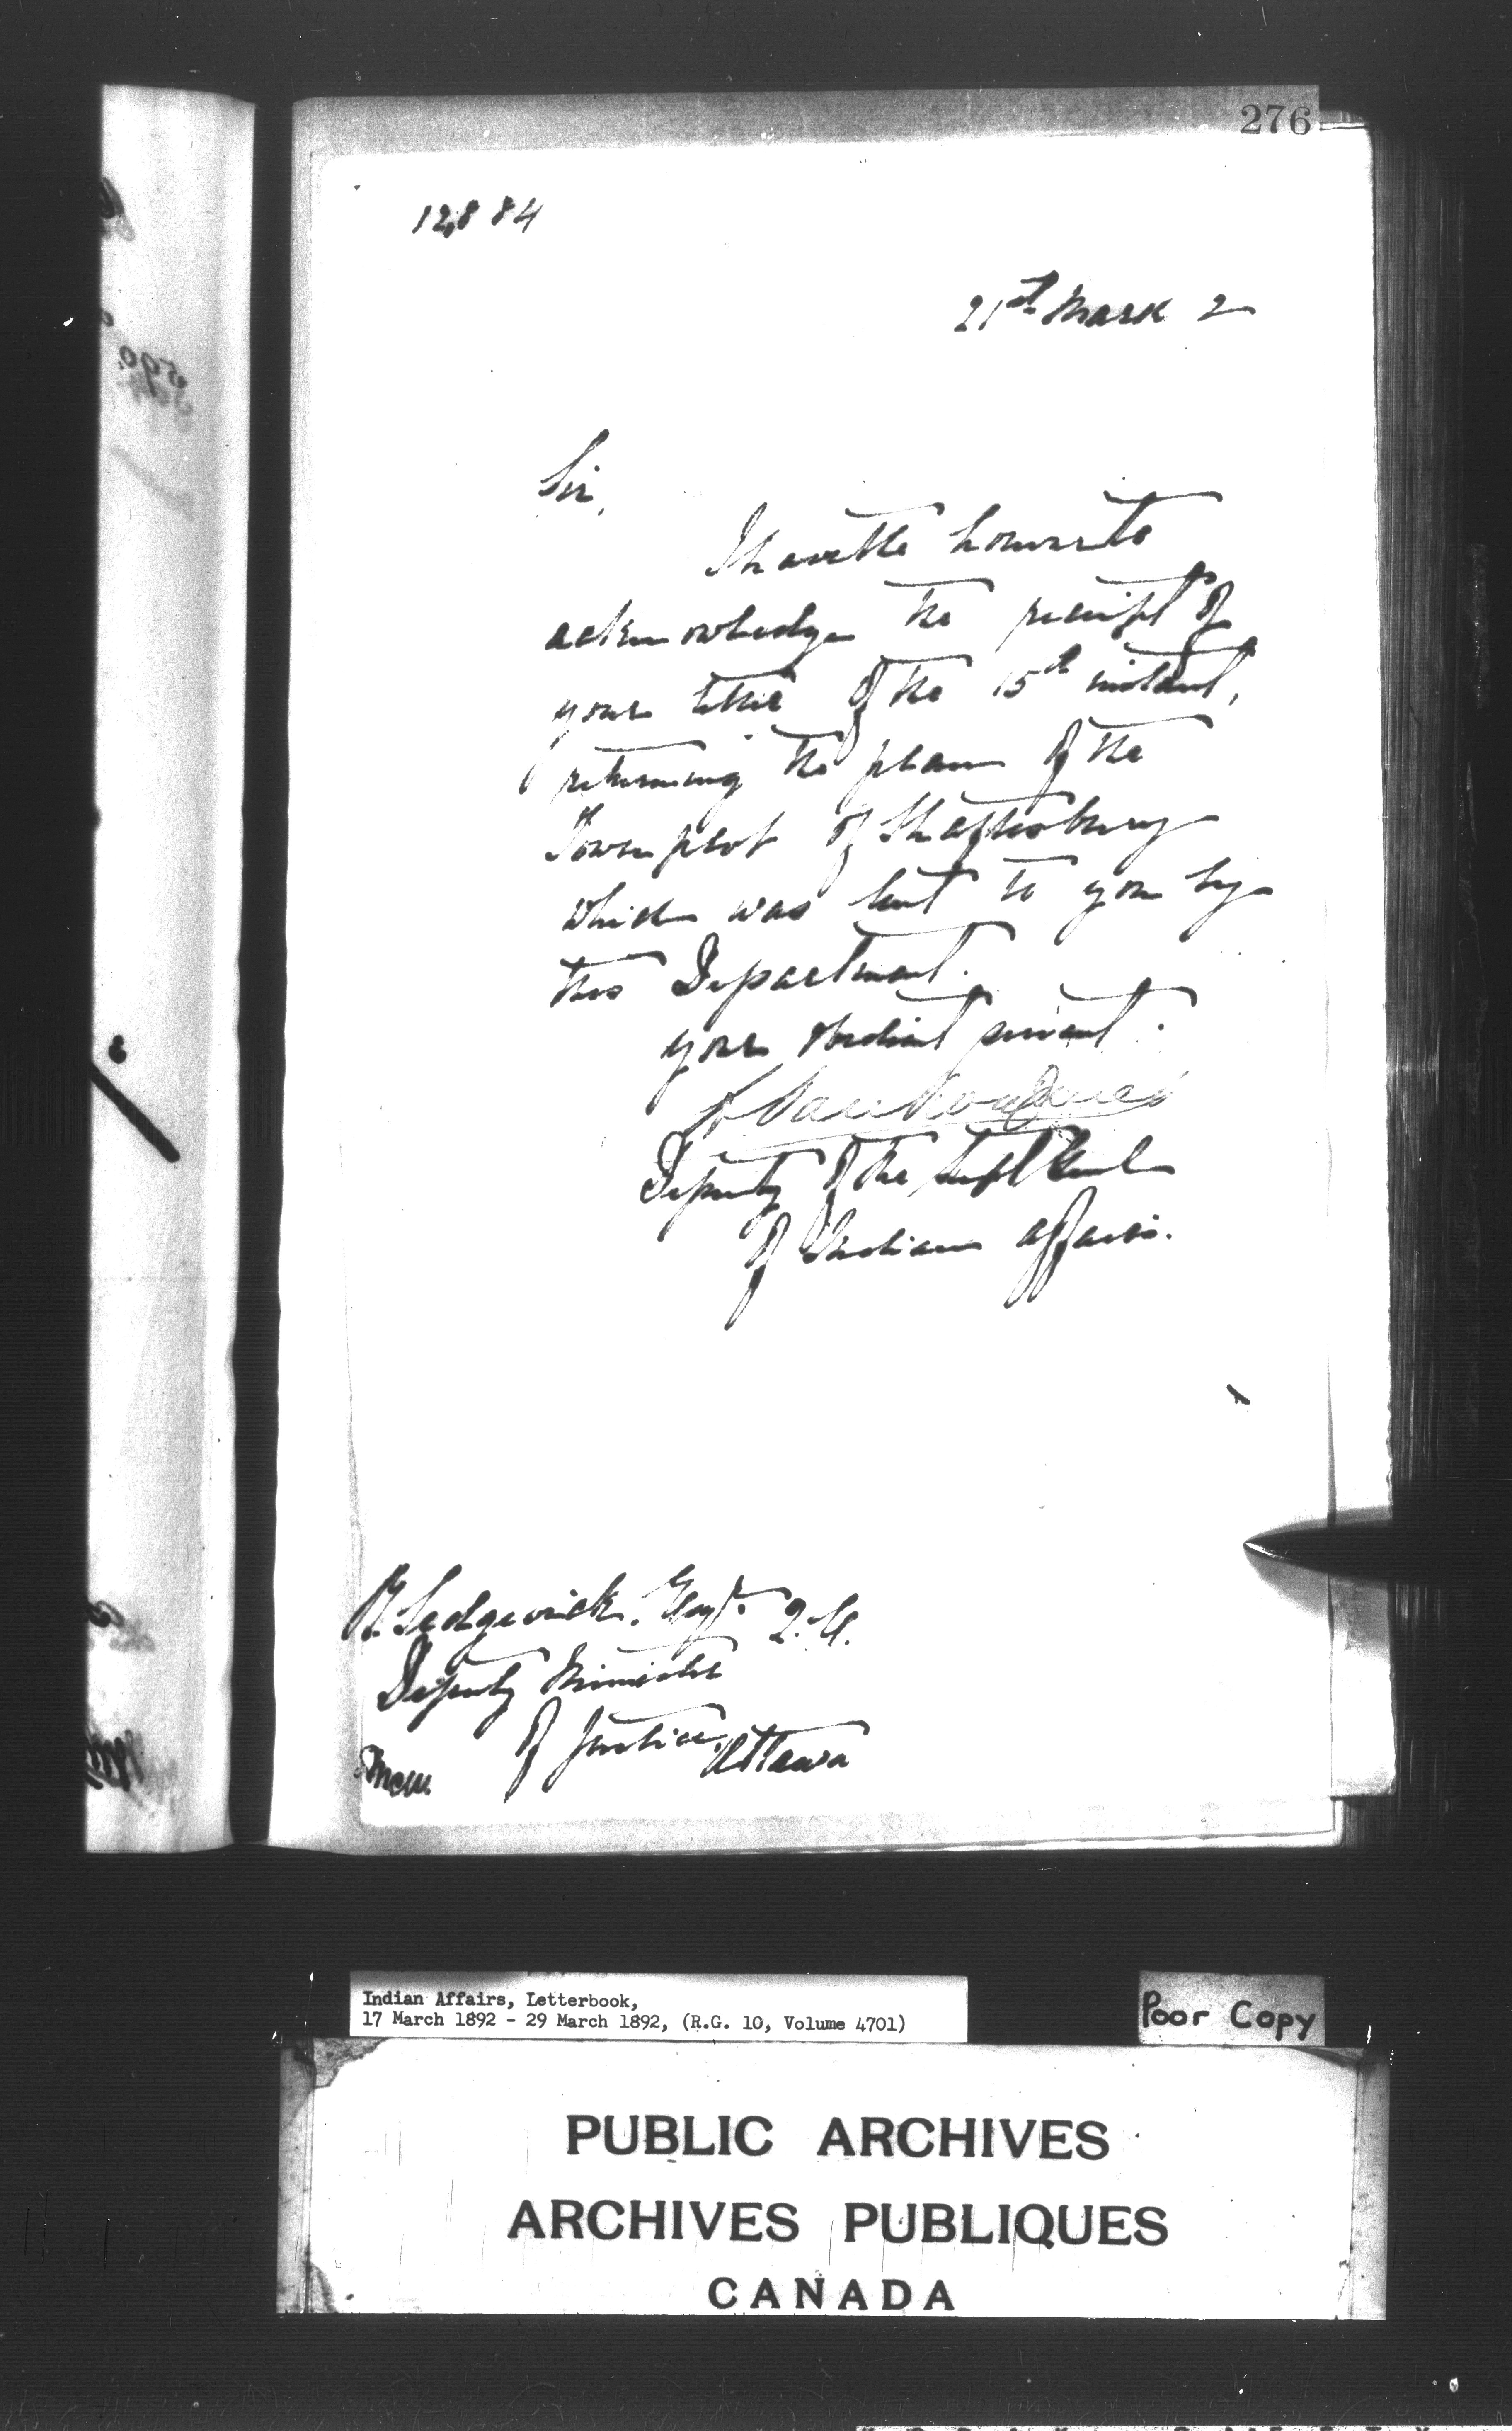 276
12,884
21st March 2
Sir,
I have the honour to
acknowledge the receipt of
your letter of the 15th instant,
returning the plan of the
Town plot of Shaftesbury
which was lent to you by
this Department.
Your obedient servant.
L Vankoughnet
Deputy of the Supt Genl
of Indian Affairs.
R. Sedgewick, Esqr. Q.C.
Deputy Minister
of Justice,
Ottawa
Indian Affairs, Letterbook,
17 March 1892 - 29 March 1892, (R.G. 10, Volume 4701)
Poor Copy
PUBLIC ARCHIVES
ARCHIVES PUBLIQUES
CANADA